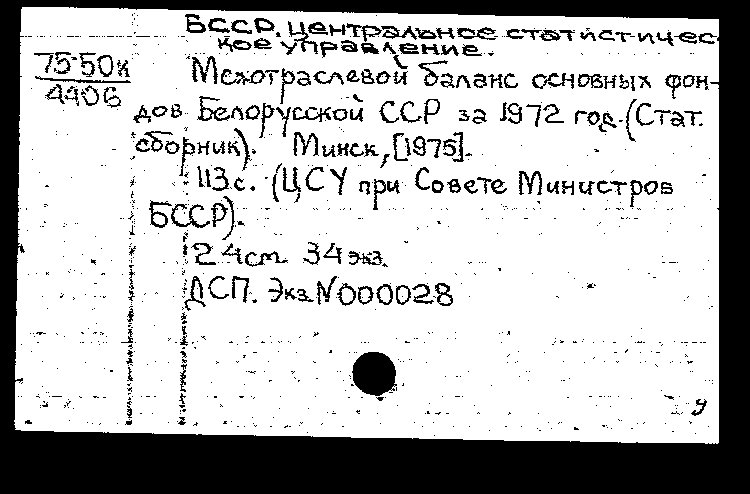 БССР. Центральное статистичес-
кое управление.
75-50к
4406
Межотраслевой баланс основных фон-
дов Белорусской ССР за 1972 год. (Стат.
сборник). Минск, [1975].
113 с. (ЦСУ при Совете Министров
БССР).
24 см. 34 экз.
ДСП. Экз. N000028
у